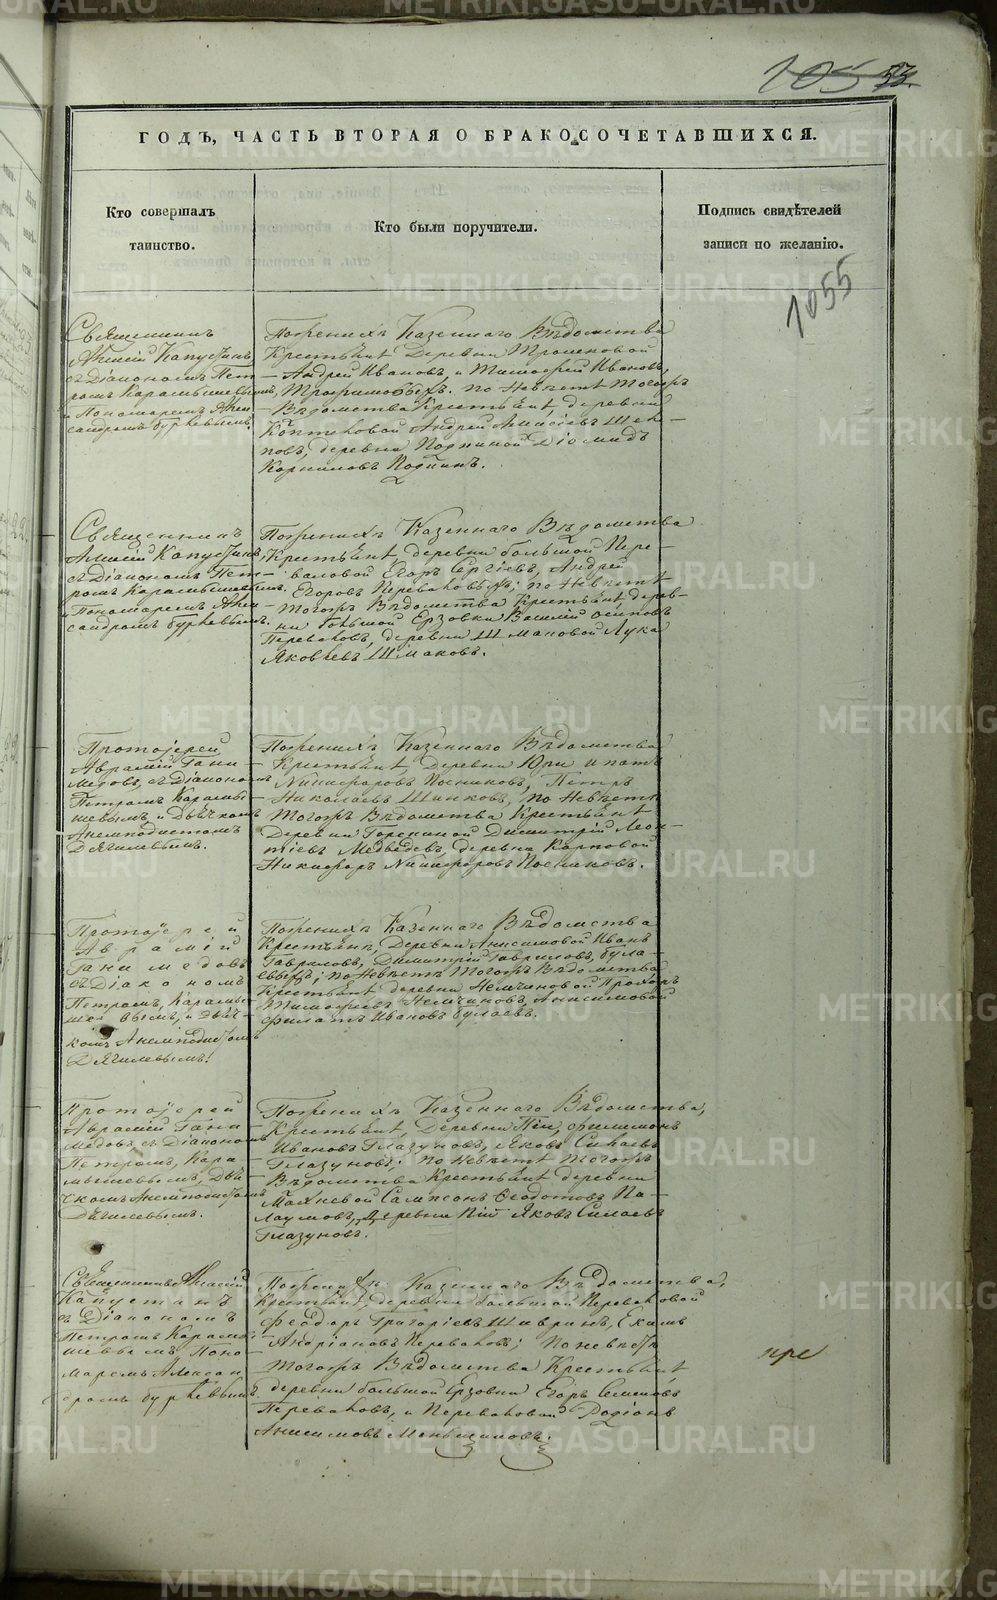 ГОДЪ, ЧАСТЬ ВТОРАЯ О БРАКОСОЧЕТАВШИХСЯ.
Кто совершалъ
таинство.
Кто были поручители.
Подпись свидѣтелей
записи по желанію.
1055
Священникъ
Алексій Капустинъ
съ Діакономъ Пет-
ромъ Карамышевымъ,
и Пономаремъ Алек-
сандромъ
По женихѣ Казеннаго Вѣдомства
Крестьяне Деревни
Андрей Ивановъ и Тимофей Ивановъ
по невѣстѣ тогожъ
Вѣдомства Крестьяне, деревни
Коптяковой Андрей
деревни Діомидъ
Корниловъ
Священникъ
Алексій Капустинъ
съ Діакономъ Пет-
ромъ Карамышевымъ,
Пономаремъ Алек-
сандромъ
По женихѣ Казеннаго Вѣдомства
Крестьяне, деревни большой Пере-
Егоръ Сергіевъ, Андрей
Егоровъ по невѣстѣ
тогожъ Вѣдомства Крестьяне дерев-
ни большой Ерзовки Василій Осиповъ
деревни Шмаковой Лука
Яковлевъ Шмаковъ.
Протоіерей
Аврамій Гани-
медовъ, съ Діакономъ
Петромъ Карамы-
шевымъ, и Дьячкомъ
Анемподистомъ
Дягилевымъ.
По женихѣ Казеннаго Вѣдомства
Крестьяне деревни
Никифоровъ Посниковъ, Петръ
Николаевъ по невѣстѣ
тогожъ Вѣдомства Крестьяне
Деревни Горскиной Димитрій Леон-
тіевъ Медведевъ, деревни Карповой
Никифоръ Никифоровъ Посниковъ.
Протоіерей
Аврамій
Ганимедовъ
съ Діакономъ
Петромъ, Карамы-
шевымъ, и Дьяч-
комъ Анемподистомъ
Дягилевымъ.
По женихѣ Казеннаго Вѣдомства
Крестьяне, Деревни Анисимовой Иванъ
Гавриловъ, Димитрій Гавриловъ, Була-
евыхъ; по невѣстѣ тогожъ Вѣдомства
Крестьяне деревни Немчиновой Прохоръ
Тимофеевъ Немчиновъ, Анисимовой
Филатъ Ивановъ Булаевъ.
Протоіерей
Аврамій Гани-
медовъ съ Діакономъ
Петромъ, Кара-
мышевымъ, Дья-
чкомъ Анемподистомъ
Дягилевымъ.
По женихѣ Казеннаго Вѣдомства,
Крестьяне, Деревни Піи, Филимонъ
Ивановъ Глазуновъ, Яковъ Силаевъ
Глазуновъ; по невѣстѣ тогожъ
Вѣдомства Крестьяне деревни
Махневой Сампсонъ Федотовъ Па-
Деревни Піи Яковъ Силаевъ
Глазуновъ.
Священникъ Алексій
Капустинъ
съ Діакономъ
Петромъ Карамы-
шевымъ Поно-
маремъ Алексан-
дромъ
По женихѣ Казеннаго Вѣдомства,
Крестьяне, деревни большой
Феодоръ Григоріевъ Екимъ
Андріановъ по невѣстѣ
тогожъ Вѣдомства Крестьяне
деревни большой Ерзовки Егоръ Семеновъ
Родіонъ
Анисимовъ Меньшиковъ.